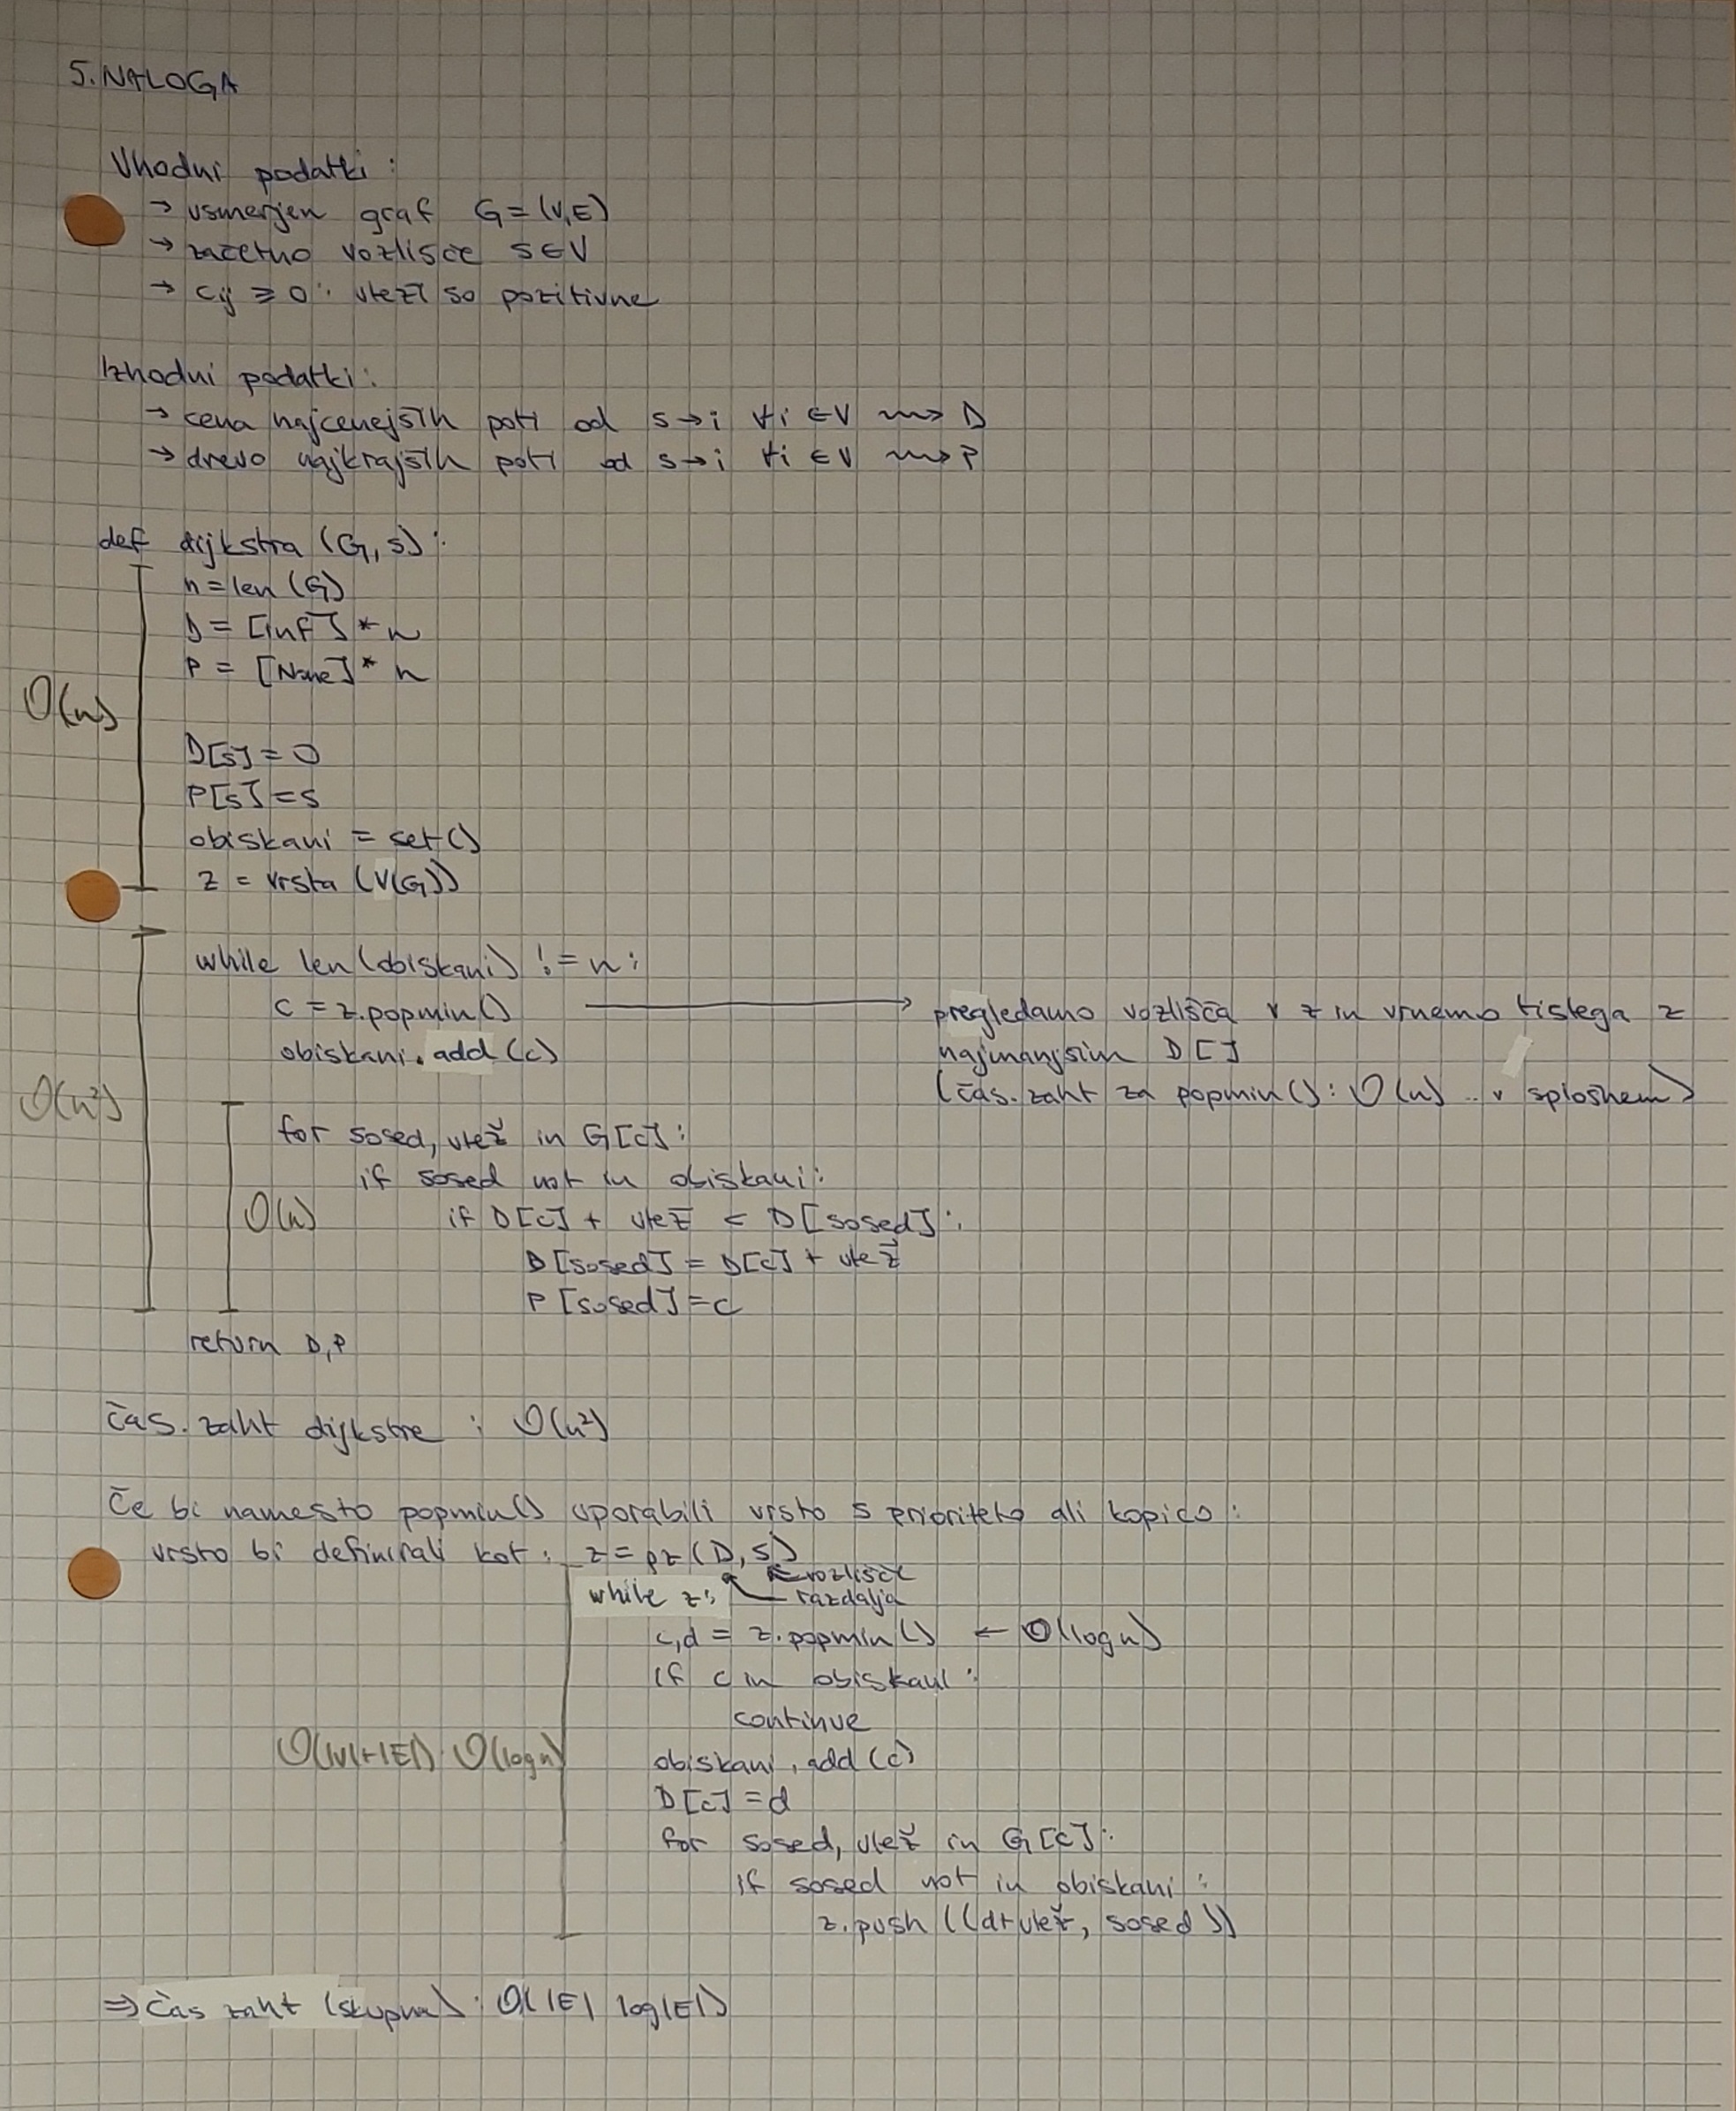 5. NALOGA
Vhodni podatki:
→ usmerjen graf G = (V, E)
→ začetno vozlišče s ∈ V
→ cij ≥ 0: uteži so pozitivne
Izhodni podatki:
→ cena najcenejših poti od s → i ∀i ∈ V ⇝ D
→ drevo najkrajših poti od s → i ∀i ∈ V ⇝ P
def dijkstra (G, s):
n = len (G)
D = [inf] * n
P = [None] * n
O(n)
D[s] = 0
P[s] = s
obiskani = set()
z = vrsta (V(G))
while len(obiskani) != n:
c = z.popmin() → pregledamo vozlišča v z in vrnemo tistega z
obiskani.add(c) najmanjšim D[]
O(n²) (čas. zaht za popmin(): O(n) .. v splošnem)
for sosed, utež in G[c]:
if sosed not in obiskani:
O(n) if D[c] + utež < D[sosed]:
D[sosed] = D[c] + utež
P[sosed] = c
return D, P
čas. zaht dijkstre : O(n²)
Če bi namesto popmin() uporabili vrsto s prioriteto ali kopico:
vrsto bi definirali kot: z = pz(D, s)
← vozlišče
while z: razdalja
c,d = z.popmin() ← O(log n)
if c in obiskani:
continue
O(|V|+|E|) · O(log n) obiskani.add(c)
D[c] = d
for sosed, utež in G[c]:
if sosed not in obiskani:
z.push((d+utež, sosed))
⇒ čas zaht (skupna): O(|E| log|E|)